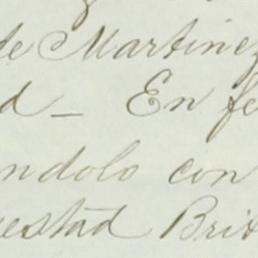 de Martinez
d - En fe
ndolo con
estad Brit